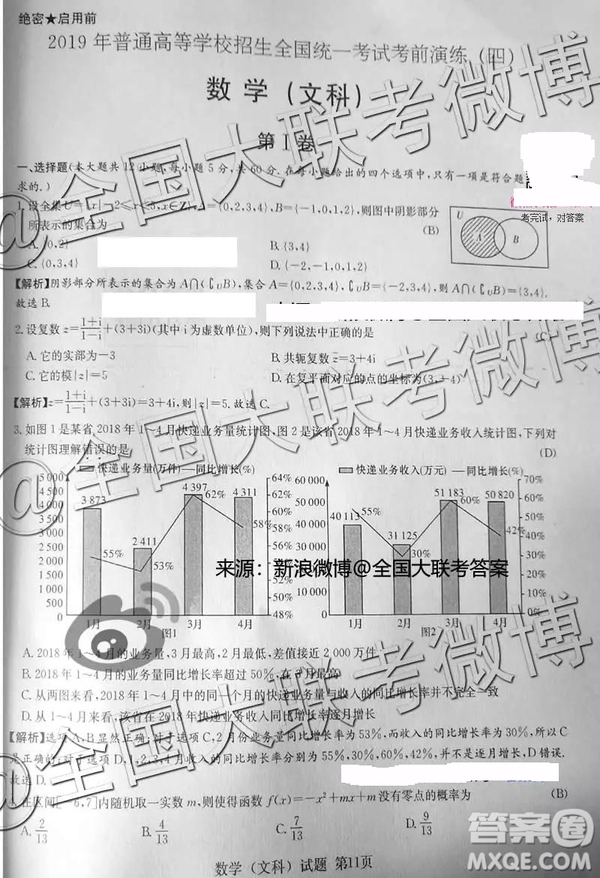 绝密★启用前
2019年普通高等学校招生全国统一考试考前演练（四）
数学（文科）
第Ⅰ卷
一、选择题(本大题共12小题,每小题5分,共60分.在每小题给出的四个选项中,只有一项是符合题
求的.)
1.设全集U={x|-2≤x≤5,x∈Z},A={0,2,3,4},B={-1,0,1,2},则图中阴影部分
所表示的集合为 (B)
U
A
B
考完试，对答案
A.{0,2}
B.{3,4}
C.{0,3,4}
D.{-2,-1,0,1,2}
【解析】阴影部分所表示的集合为A∩(∁UB),集合A={0,2,3,4},∁UB={-2,3,4,5},A∩(∁UB)={3,4}.
故选B.
2.设复数z=(1+i)/(1-i)+(3+3i)(其中i为虚数单位),则下列说法中正确的是
A.它的实部为-3
B.共轭复数z=3+4i
C.它的模|z|=5
D.在复平面对应的点的坐标为(3,-4)
【解析】z=(1+i)/(1-i)+(3+3i)=3+4i,则|z|=5,故选C.
3.如图1是某省2018年1~4月快递业务量统计图,图2是该省2018年1~4月快递业务收入统计图,下列对
统计图理解错误的是 (D)
快递业务量(万件) 同比增长(%)
5 000
4 500
4 000
3 500
3 000
2 500
2 000
1 500
1 000
500
0
3 873
2 411
4 397
4 311
55%
53%
62%
58%
64%
62%
60%
58%
56%
54%
52%
50%
48%
1月 2月 3月 4月
图1
快递业务收入(万元) 同比增长(%)
60 000
50 000
40 000
30 000
20 000
10 000
0
40 113
31 125
51 183
50 820
55%
30%
60%
42%
70%
60%
50%
40%
30%
20%
10%
0%
1月 2月 3月 4月
图2
来源：新浪微博@全国大联考答案
A.2018年1~4月的业务量,3月最高,2月最低,差值接近2 000万件
B.2018年1~4月的业务量同比增长率超过50%,在3月最高
C.从两图来看,2018年1~4月中的同一个月的快递业务量与收入的同比增长率并不完全一致
D.从1~4月来看,该省在2018年快递业务收入同比增长率逐月增长
【解析】选项A,B显然正确;对于选项C,2月份业务量同比增长率为53%,而收入的同比增长率为30%,所以C
是正确的;对于选项D,1,2,3,4月收入的同比增长率分别为55%,30%,60%,42%,并不是逐月增长,D错误.
故选D.
4.在区间[-6,7]内随机取一实数m,则函数f(x)=-x²+mx+m没有零点的概率为 (B)
A.2/13
B.4/13
C.7/13
D.9/13
数学（文科）试题 第11页
@全国大联考微博
@全国大联考微博
@全国大联考微博
答案圈
MXQE.COM